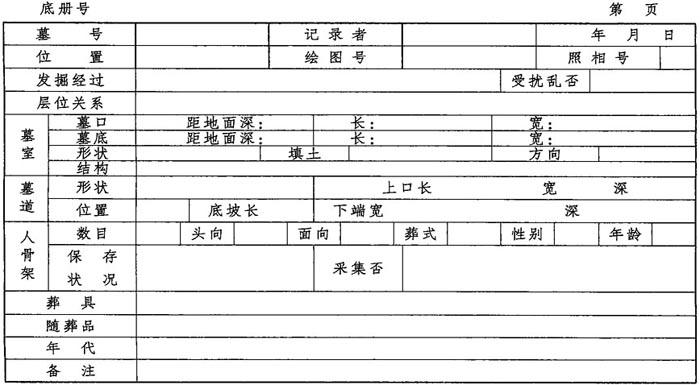 底册号 第 页
墓 号 记 录 者 年 月 日
位 置 绘 图 号 照 相 号
发掘经过 受扰乱否
层位关系
墓室 墓口 距地面深： 长： 宽：
墓底 距地面深： 长： 宽：
形状 填土 方向
结构
墓道 形状 上口长 宽 深
位置 底坡长 下端宽 深
人骨架 数目 头向 面向 葬式 性别 年龄
保 存 状 况 采集否
葬 具
随葬品
年 代
备 注